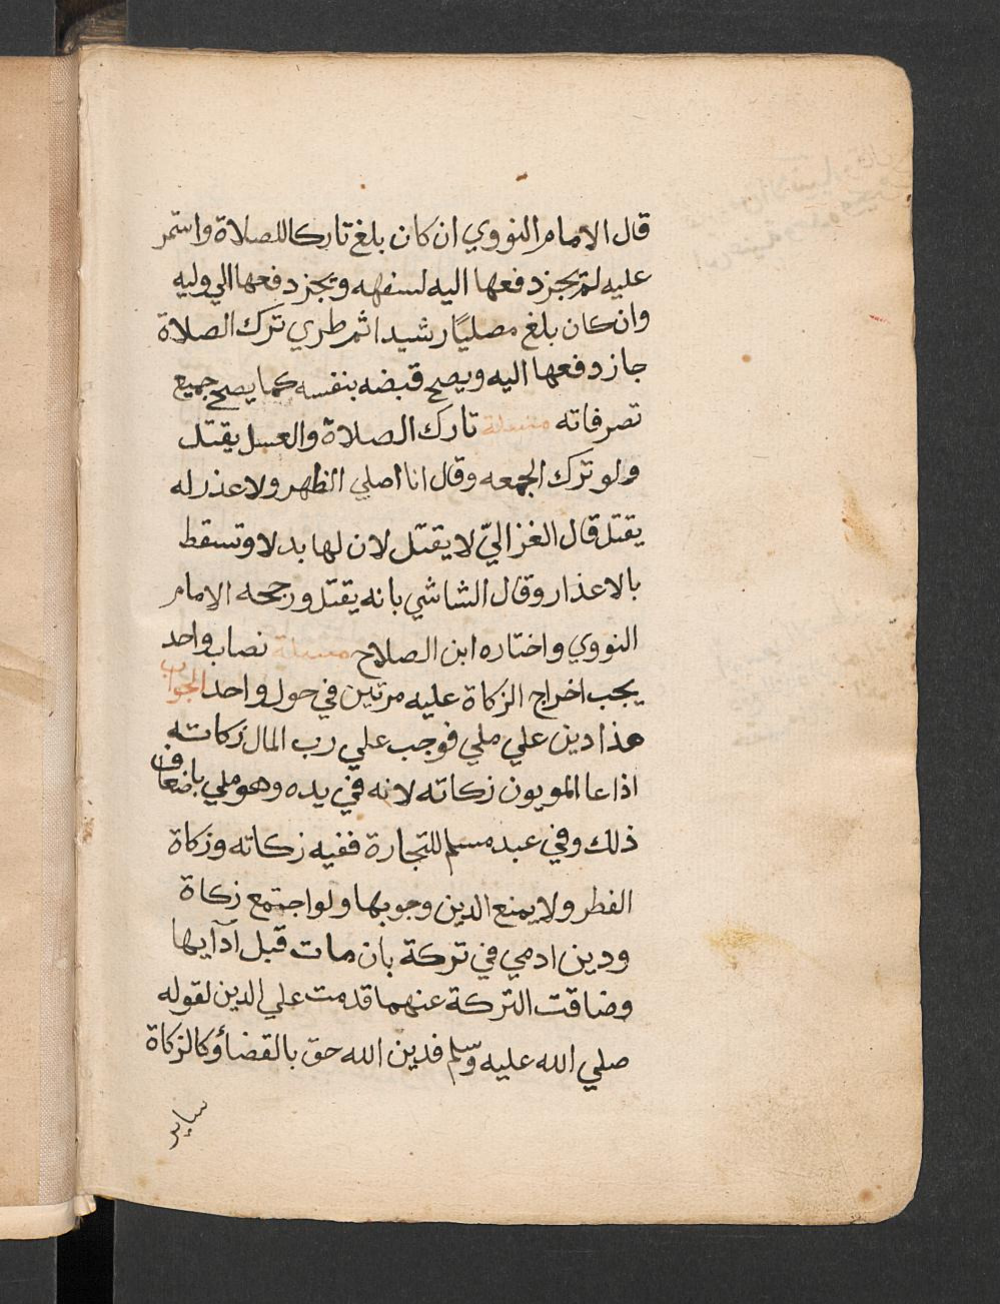 قال الامام النووي ان كان بلغ تاركا للصلاة واستمر
عليه لم يجز دفعها اليه لسفهه ويجز دفعها الي وليه
وان كان بلغ مصليا رشيدا ثم طري ترك الصلاة
جاز دفعها اليه ويصح قبضه بنفسه كما يصح جميع
تصرفاته مسئلة تارك الصلاة والغسل يقتل
ولو ترك الجمعه وقال انا اصلي الظهر ولا عذر له
يقتل قال الغزالي لا يقتل لان لها بدلا وتسقط
بالاعذار وقال الشاشي بانه يقتل ورجحه الامام
النووي واختاره ابن الصلاح مسئلة نصاب واحد
يجب اخراج الزكاة عليه مرتين في حول واحد الجواب
هذا دين علي ملي فوجب علي رب المال زكاته
اذا عا المويون زكاته لانه في يده وهو ملي باضعاف
ذلك وفي عبد مسلم للتجارة ففيه زكاته وزكاة
الفطر ولا يمنع الدين وجوبها ولو اجتمع زكاة
ودين ادمي في تركة بان مات قبل اداىها
وضاقت التركة عنهما قدمت علي الدين لقوله
صلي الله عليه وسلم فدين الله حق بالقضاء وكالزكاة
ساير